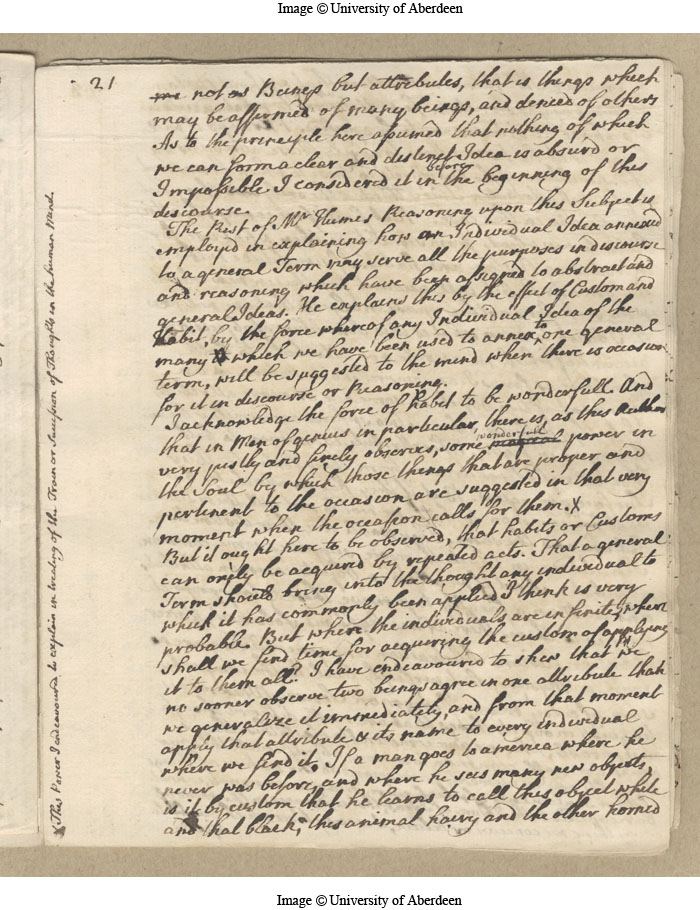 Image © University of Aberdeen
21
not as Beings but attributes, that is things which
may be affirmed of many beings, and denied of others
As to the principle here assumed that nothing of which
we can form a clear and distinct Idea is absurd or
Impossible I considered it before in the beginning of this
discourse.
The Rest of Mr Humes Reasoning upon this Subject is
employd in explaining how an Individual Idea annexed
to a general Term may serve all the purposes in discourse
and reasoning which have been assigned to abstract and
general Ideas. He explains this by the effect of Custom and
habit, by the force whereof any Individual Idea of the
many which we have been used to annex to one general
term, will be suggested to the mind when there is occasion
for it in discourse or Reasoning.
I acknowledge the force of habit to be wonderfull. And
that in Men of genius in particular, there is, as this Author
very justly and finely observes, some magical wonderfull power in
the Soul by which those things that are proper and
pertinent to the occasion are suggested in that very
moment when the occasion calls for them. X
But it ought here to be observed, that habits or Customs
can onely be acquired by repeated acts. That a general
Term should bring into the thought any individual to
which it has commonly been applied I think is very
probable. But where the individuals are infinite, where
shall we find time for acquiring the custom of applying
it to them all? I have endeavoured to shew that we
no sooner observe two beings agree in one attribute than
we generalize it immediately, and from that moment
apply that attribute & its name to every individual
where we find it. If a man goes to america where he
never was before, and where he sees many new objects,
is it by custom that he learns to call this object white
and that black, this animal hairy and the other horned
X This Power I endeavoured to explain in treating of the Train or Succession of Thoughts in the human Mind.
Image © University of Aberdeen